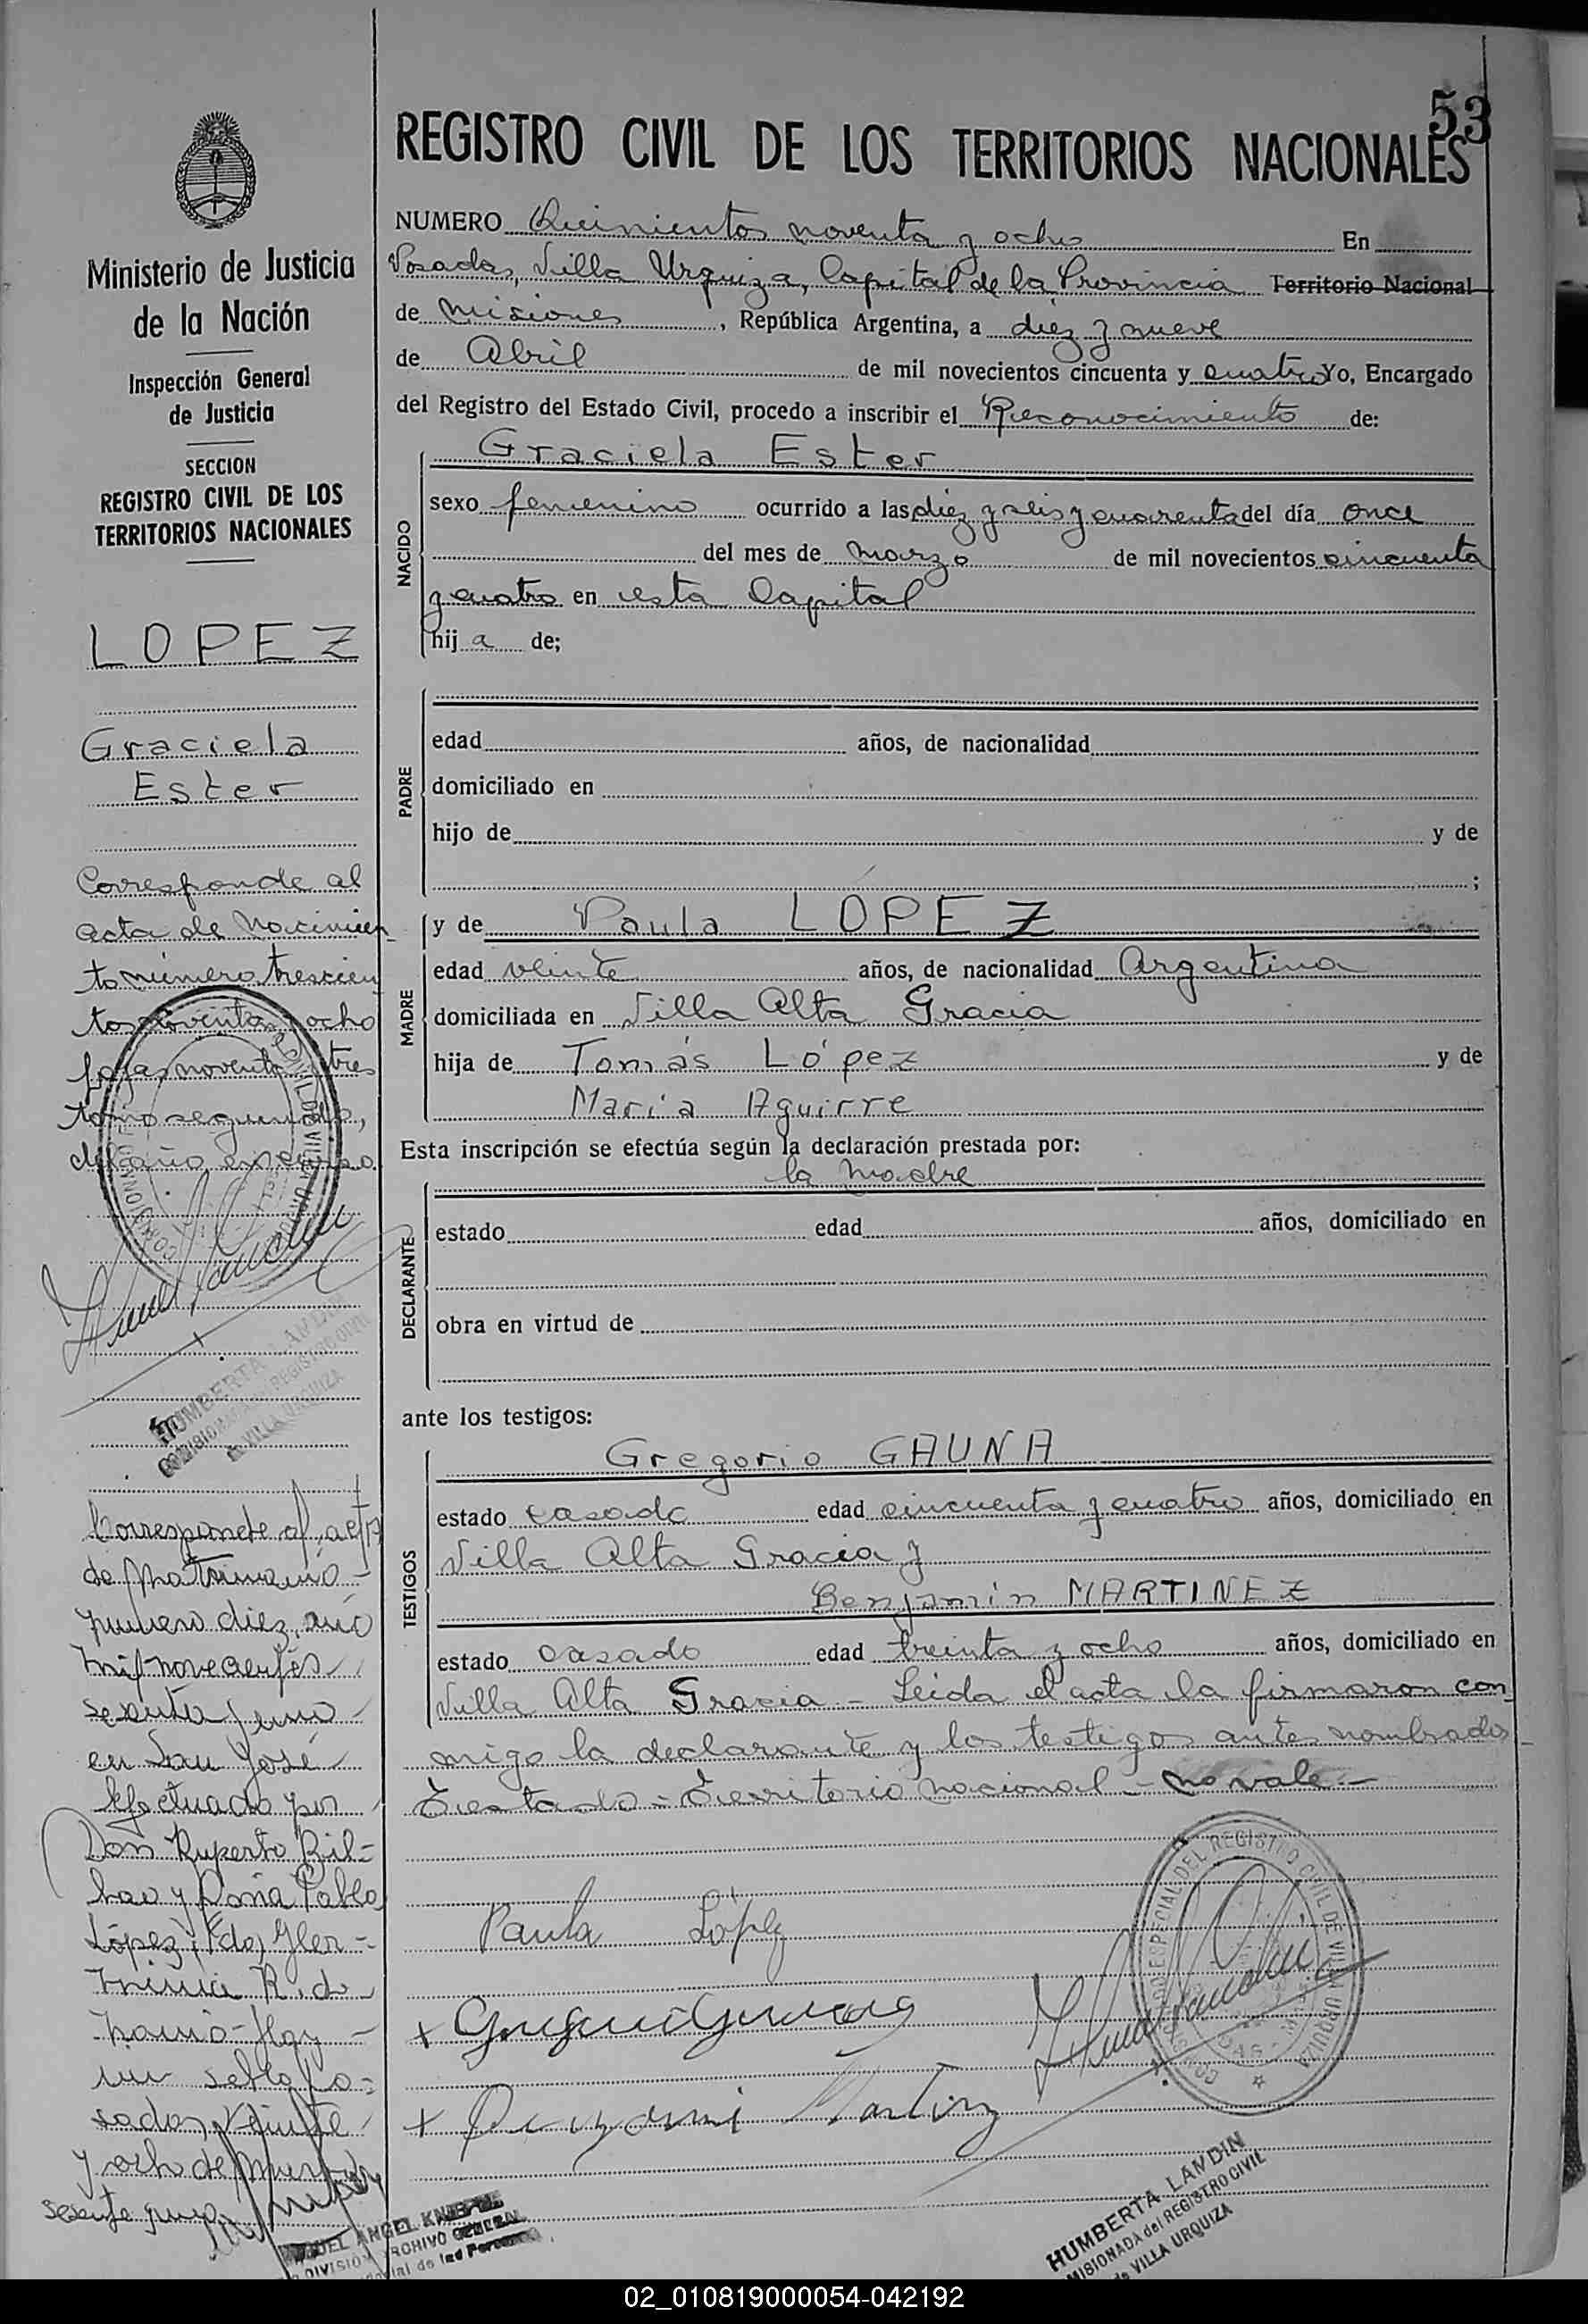 53
REGISTRO CIVIL DE LOS TERRITORIOS NACIONALES
Ministerio de Justicia
de la Nación
Inspección General
de Justicia
SECCION
REGISTRO CIVIL DE LOS
TERRITORIOS NACIONALES
LOPEZ
Graciela
Ester
Corresponde al
acta de Nacimien
to número trescien
tos noventa y ocho
fojas noventa y tres
tomo segundo,
del año en curso
HUMBERTA LANDIN
COMISIONADA del REGISTRO CIVIL
de VILLA URQUIZA
Corresponde al acta
de Matrimonio
número diez, año
mil novecientos
sesenta y uno
en San José
Efectuado por
Don Ruperto Bil-
bao y Doña Pabla
López, Fdo,
R. de
Hay
un sello Po-
sadas, Veinte
y ocho de
sesenta
NUMERO Quinientos noventa y ocho En
Posadas, Villa Urquiza, Capital de la Provincia Territorio Nacional
de Misiones, República Argentina, a diez y nueve
de Abril de mil novecientos cincuenta y cuatro Yo, Encargado
del Registro del Estado Civil, procedo a inscribir el Reconocimiento de:
NACIDO
Graciela Ester
sexo femenino ocurrido a las diez y seis y cuarenta del día once
del mes de marzo de mil novecientos cincuenta
y cuatro en esta Capital
hija de;
PADRE
edad años, de nacionalidad
domiciliado en
hijo de y de
;
MADRE
y de Paula LOPEZ
edad veinte años, de nacionalidad Argentina
domiciliada en Villa Alta Gracia
hija de Tomás López y de
María Aguirre
Esta inscripción se efectúa según la declaración prestada por:
la Madre
DECLARANTE
estado edad años, domiciliado en
obra en virtud de
ante los testigos:
TESTIGOS
Gregorio GAUNA
estado casado edad cincuenta y cuatro años, domiciliado en
Villa Alta Gracia y
Benjamín MARTINEZ
estado casado edad treinta y ocho años, domiciliado en
Villa Alta Gracia - Leida el acta la firmaron con
migo la declarante y los testigos antes nombrados
Testado = Territorio Nacional - No vale.-
Paula López
COMISIONADO ESPECIAL DEL REGISTRO CIVIL DE VILLA URQUIZA
HUMBERTA LANDIN
MISIONADA del REGISTRO CIVIL
de VILLA URQUIZA
ANGEL
DIVISION ARCHIVO GENERAL
de las Personas
02_010819000054-042192